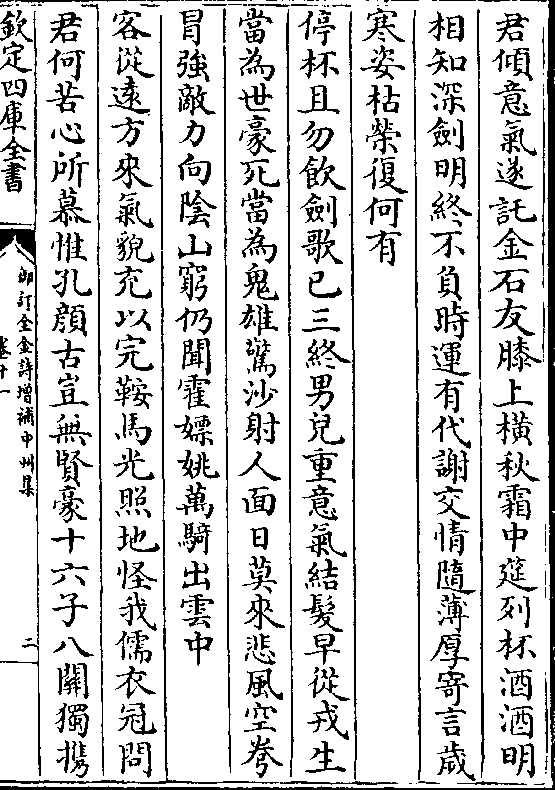 君傾意氣遂託金石友膝上橫秋霜中筵列杯酒酒明
相知深劍明終不負時運有代謝交情隨薄厚寄言歲
寒姿枯榮復何有
停杯且勿飲劍歌已三終男兒重意氣結髮早從戎生
當為世豪死當為鬼雄驚沙射人面日莫來悲風空弮
冒強敵力向陰山窮仍聞霍嫖姚萬騎出雲中
客從逺方來氣貌充以完鞍馬光照地怪我儒衣冠問
君何苦心所慕惟孔顔古豈無賢豪十六子八關獨攜
欽定四庫全書
御訂全金詩增補中州集
卷十一
二